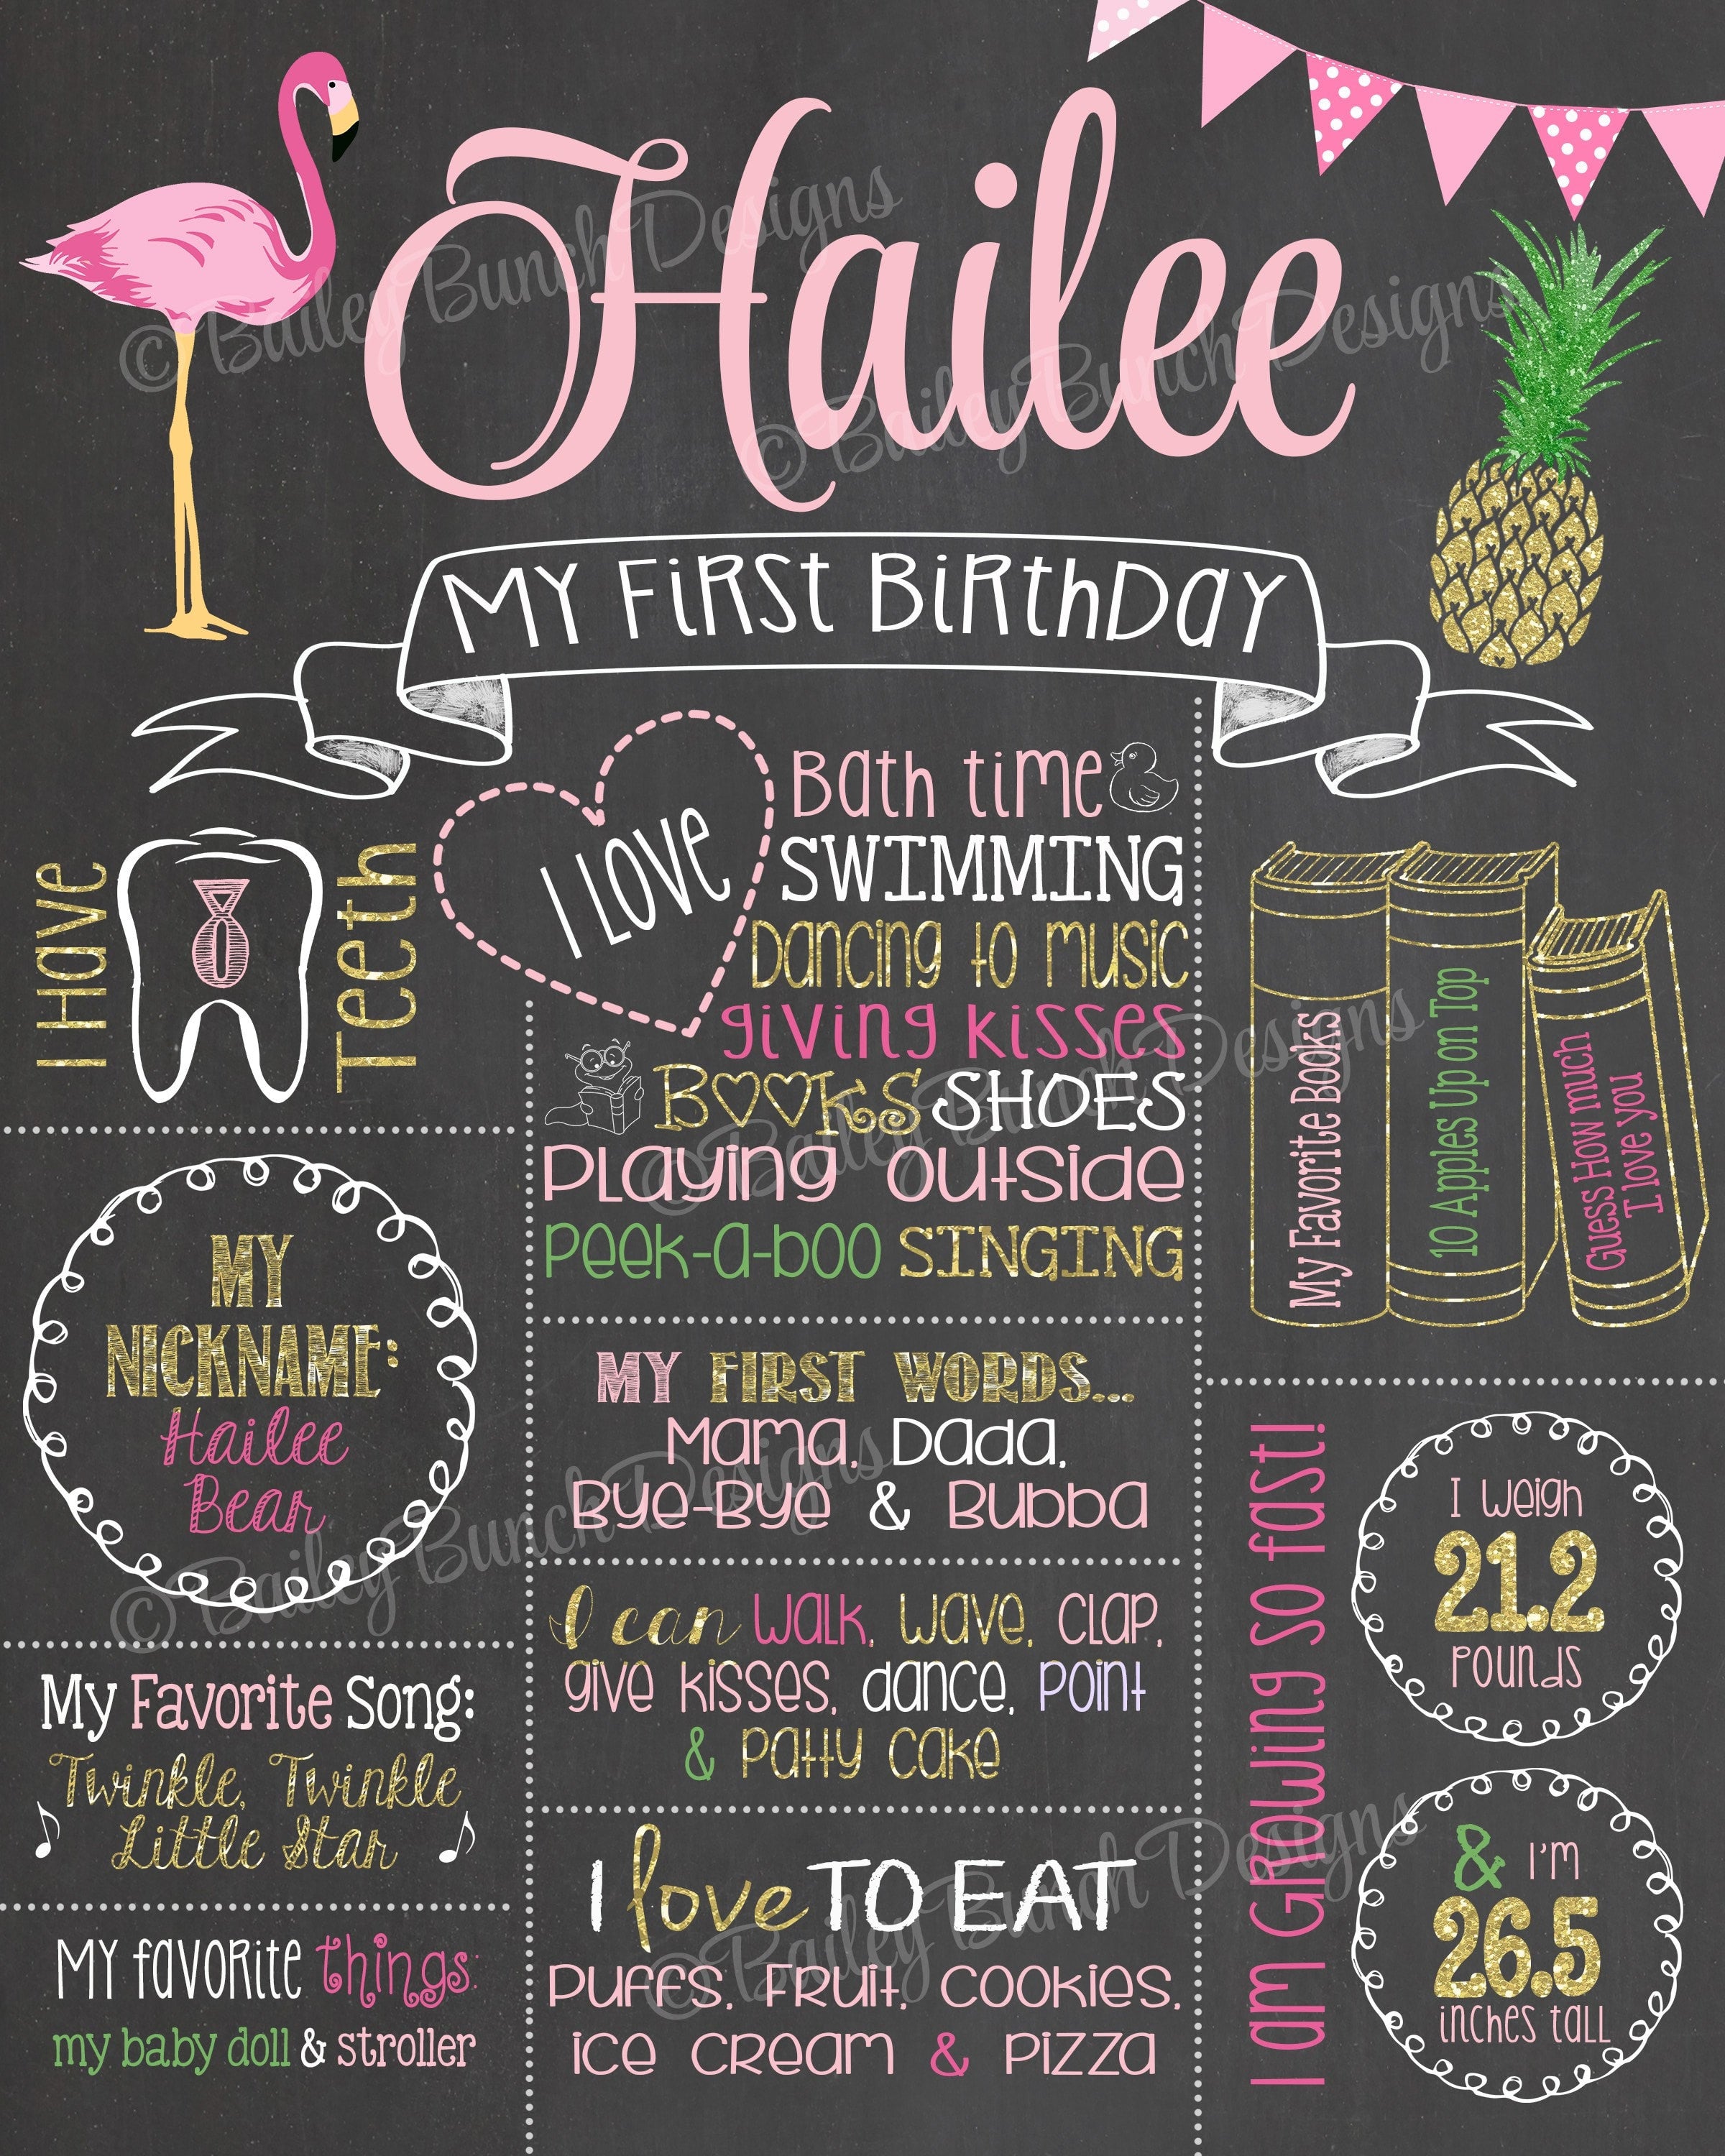 Hailee
MY FiRSt BiRthDaY
I Have
8
Teeth
I LOVE
Bath time
SWIMMING
Dancing to music
giving kisses
BOOKS SHOES
Playing outside
Peek-a-boo SINGING
My Favorite Books
10 Apples Up on Top
Guess How much
I love you
MY
NICKNAME:
Hailee
Bear
MY FIRST WORDS...
Mama, Dada,
Bye-Bye & Bubba
I can walk, wave, clap,
give kisses, dance, point
& patty cake
My Favorite Song:
Twinkle, Twinkle
Little Star
MY favoRite things:
my baby doll & stroller
I love TO EAT
Puffs, Fruit, Cookies,
ice cream & pizza
I am GROWing so fast!
I weigh
21.2
pounds
& I'm
26.5
inches tall
© Bailey Bunch Designs
© Bailey Bunch Designs
© Bailey Bunch Designs
© Bailey Bunch Designs
© Bailey Bunch Designs